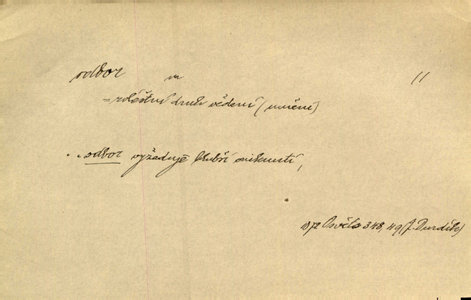 odbor m 11
= zvláštní druh vědění (umění)
.. odbor vyžaduje hlubší
1872 Osvěta 348, 49 (J. Durdík)